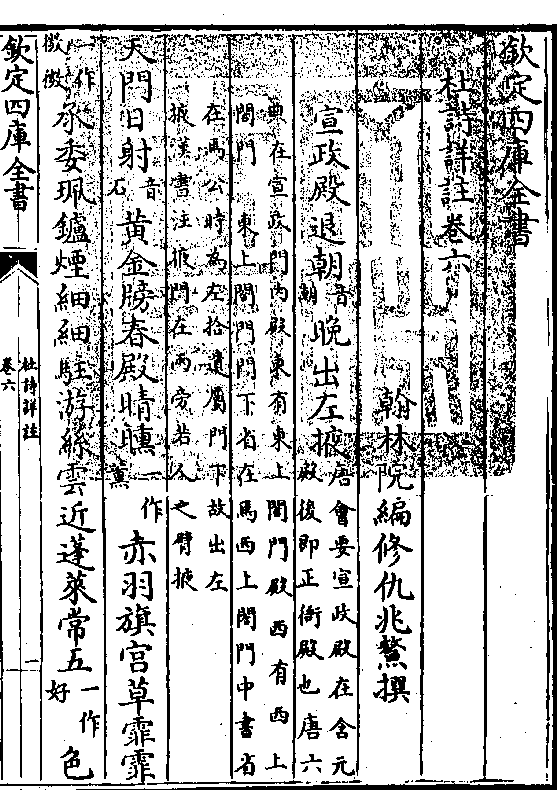 欽定四庫全書
杜詩詳註卷六
翰林院編修仇兆鰲撰
宣政殿退朝音朝晚出左掖唐會要宣政殿在含元殿後即正衙殿也唐六
典在宣政門內殿東有東上閤門殿西有西上閤門東上閤門門下省在焉西上閤門中書省
在焉公時為左拾遺屬門下故出左掖漢書注掖門在兩旁若人之臂掖
天門日射音石黃金牓春殿晴曛一作薰赤羽旗宮草霏霏
一作微微承委珮鑪煙細細駐游絲雲近蓬萊常五一作好色
欽定四庫全書
杜詩詳註
卷六
一